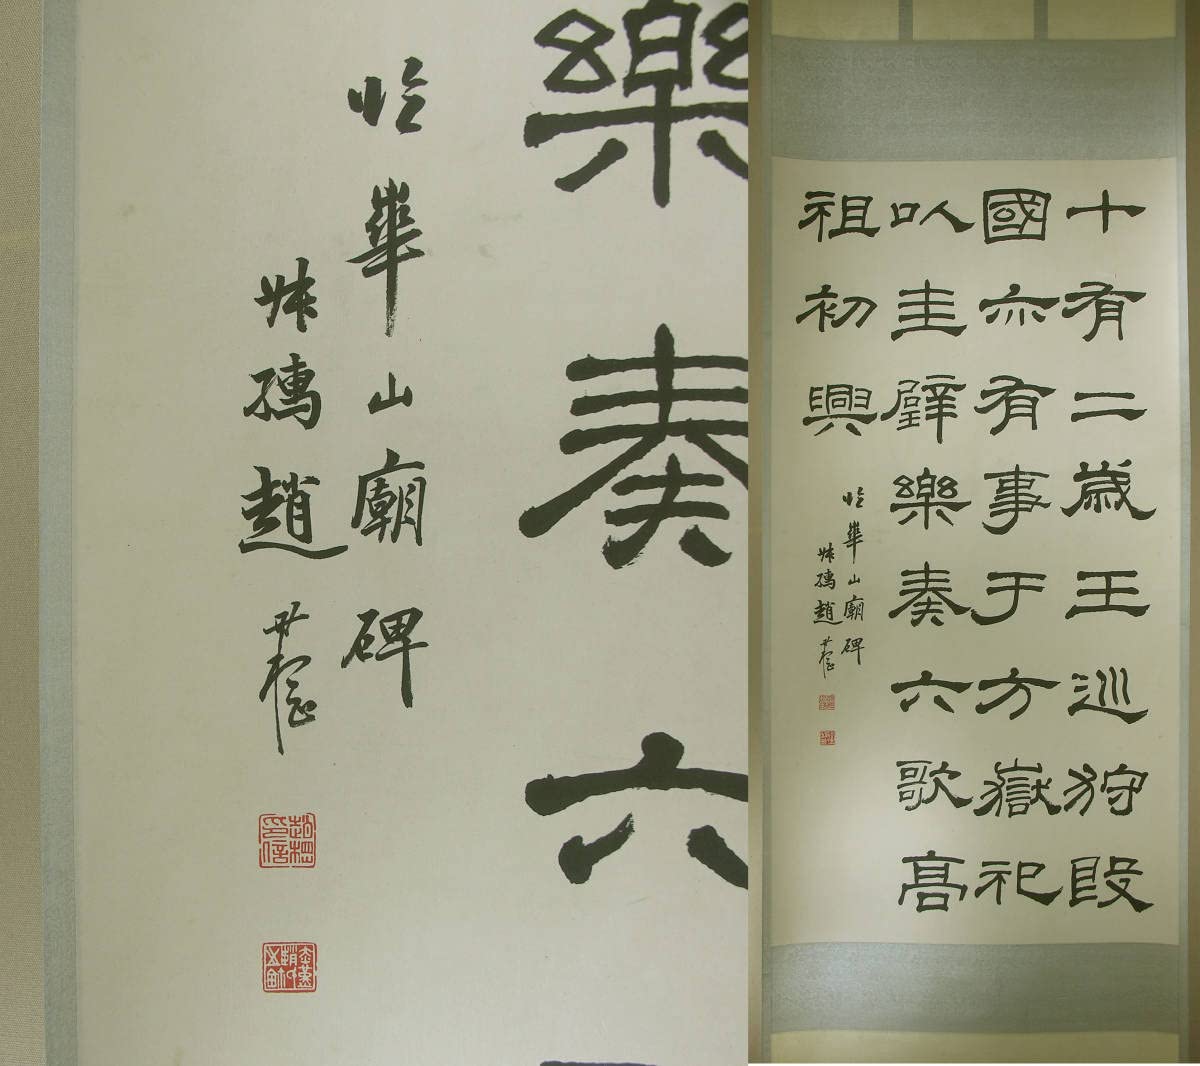 樂奏六
臨華山廟碑
叔孺趙時棡
十有二歲王巡狩殷
國亦有事于方嶽祀
以圭璧樂奏六歌高
祖初興
臨華山廟碑
叔孺趙時棡